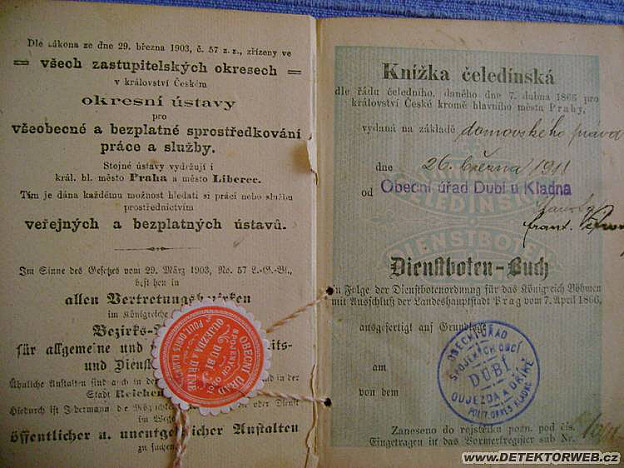 Dle zákona ze dne 29. března 1903, č. 57 z. z., zřízeny ve
všech zastupitelských okresech
v království Českém
okresní ústavy
pro
všeobecné a bezplatné sprostředkování
práce a služby.
Stejné ústavy vydržují i
král. hl. město Praha a město Liberec.
Tím je dána každému možnost hledati si práci nebo službu
prostřednictvím
veřejných a bezplatných ústavů.
Im Sinne des Gesetzes vom 29. März 1903, No. 57 L.-G.-Bl.,
bestehen in
allen Vertretungsbezirken
im Königreiche
Bezirks-
für allgemeine und
und Dienst
Ähnliche Anstalten sind auch in
Stadt Reichen
Hiedurch ist Jedermann die Möglich
oder Dienst
im Wege
öffentlicher u. unentgeltlicher Anstalten
zu suchen
OBECNÍ ÚŘAD
SPOJENÝCH OBCÍ
DUBÍ
OUJEZDA A DŘÍNĚ
POLIT. OKRES KLADNO
Knížka čeledínská
dle řádu čeledního, daného dne 7. dubna 1866 pro
království České kromě hlavního města Prahy,
vydaná na základě domovského práva
dne 26. března 1911
od Obecní úřad Dubí u Kladna
Dienstboten-Buch
in Folge der Dienstbotenordnung für das Königreich Böhmen
mit Ausschluß der Landeshauptstadt Prag vom 7. April 1866,
ausgefertigt auf Grundlage
am
von dem
OBECNÍ ÚŘAD
SPOJENÝCH OBCÍ
DUBÍ
OUJEZDA A DŘÍNĚ
POLIT. OKRES KLADNO
Zaneseno do rejstříku pozn. pod čís.
Eingetragen in das Vormerkregister sub Nr.
WWW.DETEKTORWEB.CZ